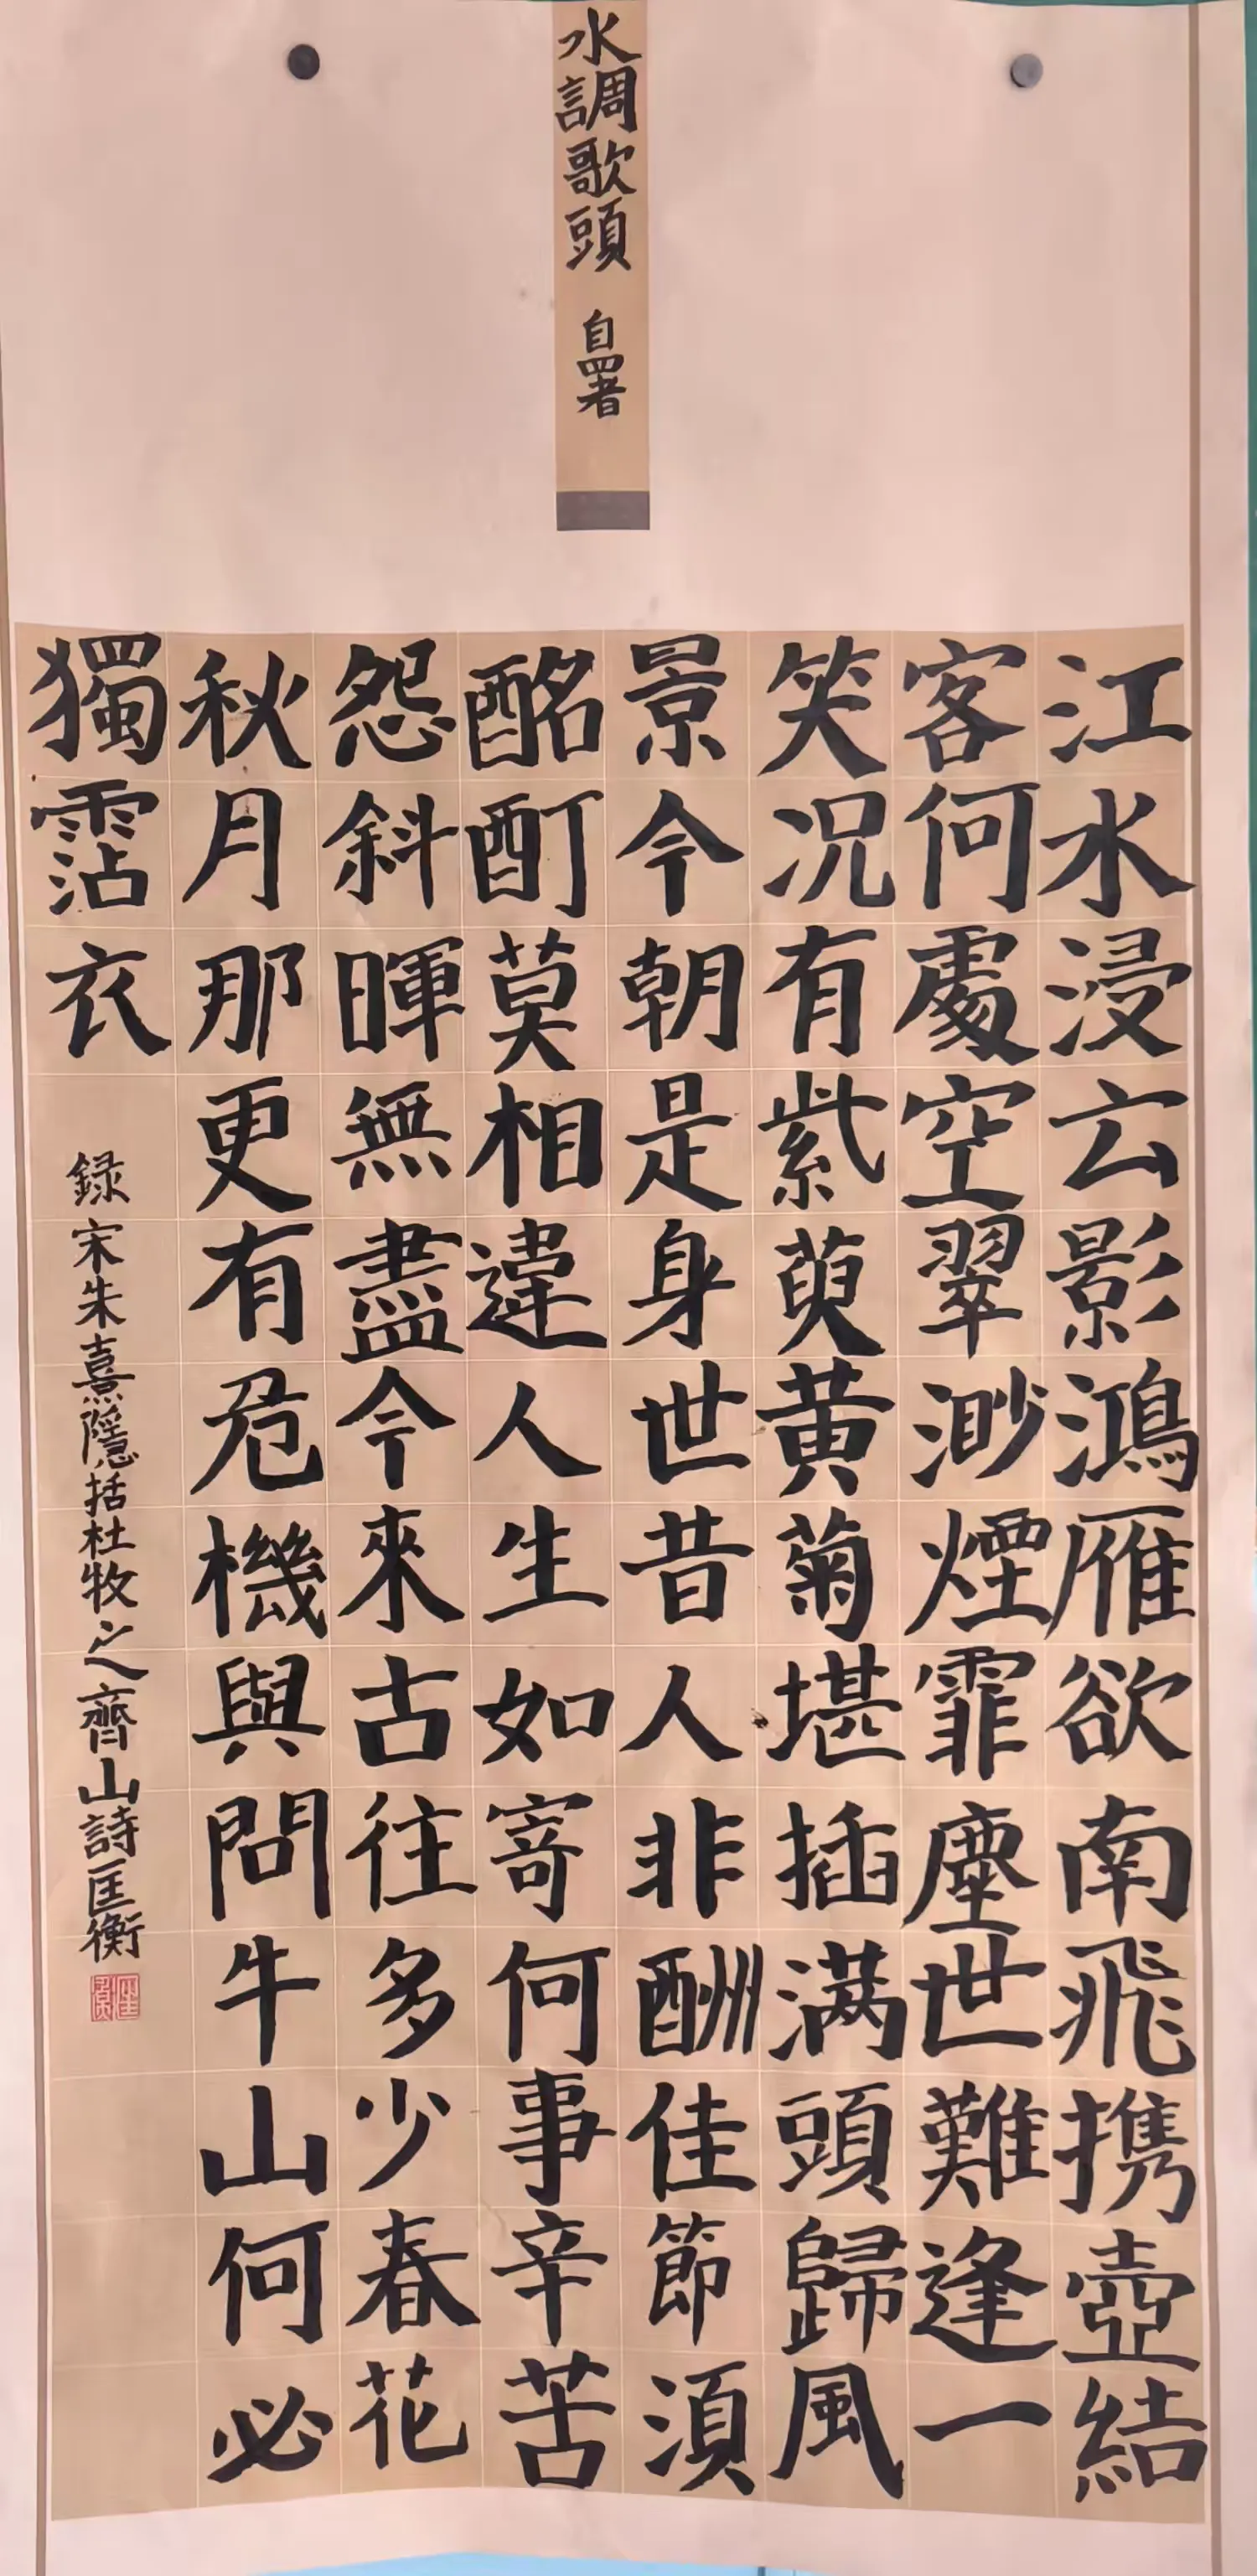 水調歌頭 自署
江水浸云影鴻雁欲南飛携壺結
客何處空翠渺煙霏塵世難逢一
笑况有紫萸黄菊堪插满頭歸風
景今朝是身世昔人非酬佳節須
酩酊莫相違人生如寄何事辛苦
怨斜暉無盡今來古往多少春花
秋月那更有危機與問牛山何必
獨霑衣
録宋朱熹隱括杜牧之齊山詩匡衡